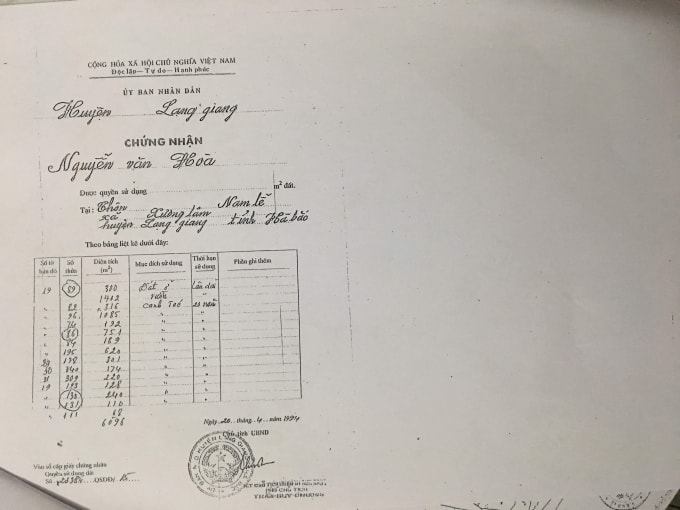 CỘNG HÒA XÃ HỘI CHỦ NGHĨA VIỆT NAM
Độc lập — Tự do — Hạnh phúc
ỦY BAN NHÂN DÂN
Huyện Lạng giang
CHỨNG NHẬN
Nguyễn văn Hòa
Được quyền sử dụng m² đất.
Tại: Thôn Nam lễ
xã Xương lâm
huyện Lạng giang tỉnh Hà bắc
Theo bảng liệt kê dưới đây:
Số tờ bản đồ Số thửa Diện tích (m²) Mục đích sử dụng Thời hạn sử dụng Phần ghi thêm
19 89 300 Đất ở Lâu dài
1412 vườn "
" 316 canh tác 20 năm
" 96 1085 " "
" "
" 86 751 " "
" 84 189 " "
" 195 620 " "
138 301 " "
30 340 174 " "
31 309 220 " "
19 193 128 " "
" 130 240 " "
" 131 110 " "
" 111 68
6096
Ngày 20 tháng 4 năm 1994
Chủ tịch UBND
Vào sổ cấp giấy chứng nhận
Quyền sử dụng đất
Số QSDĐ/ 15